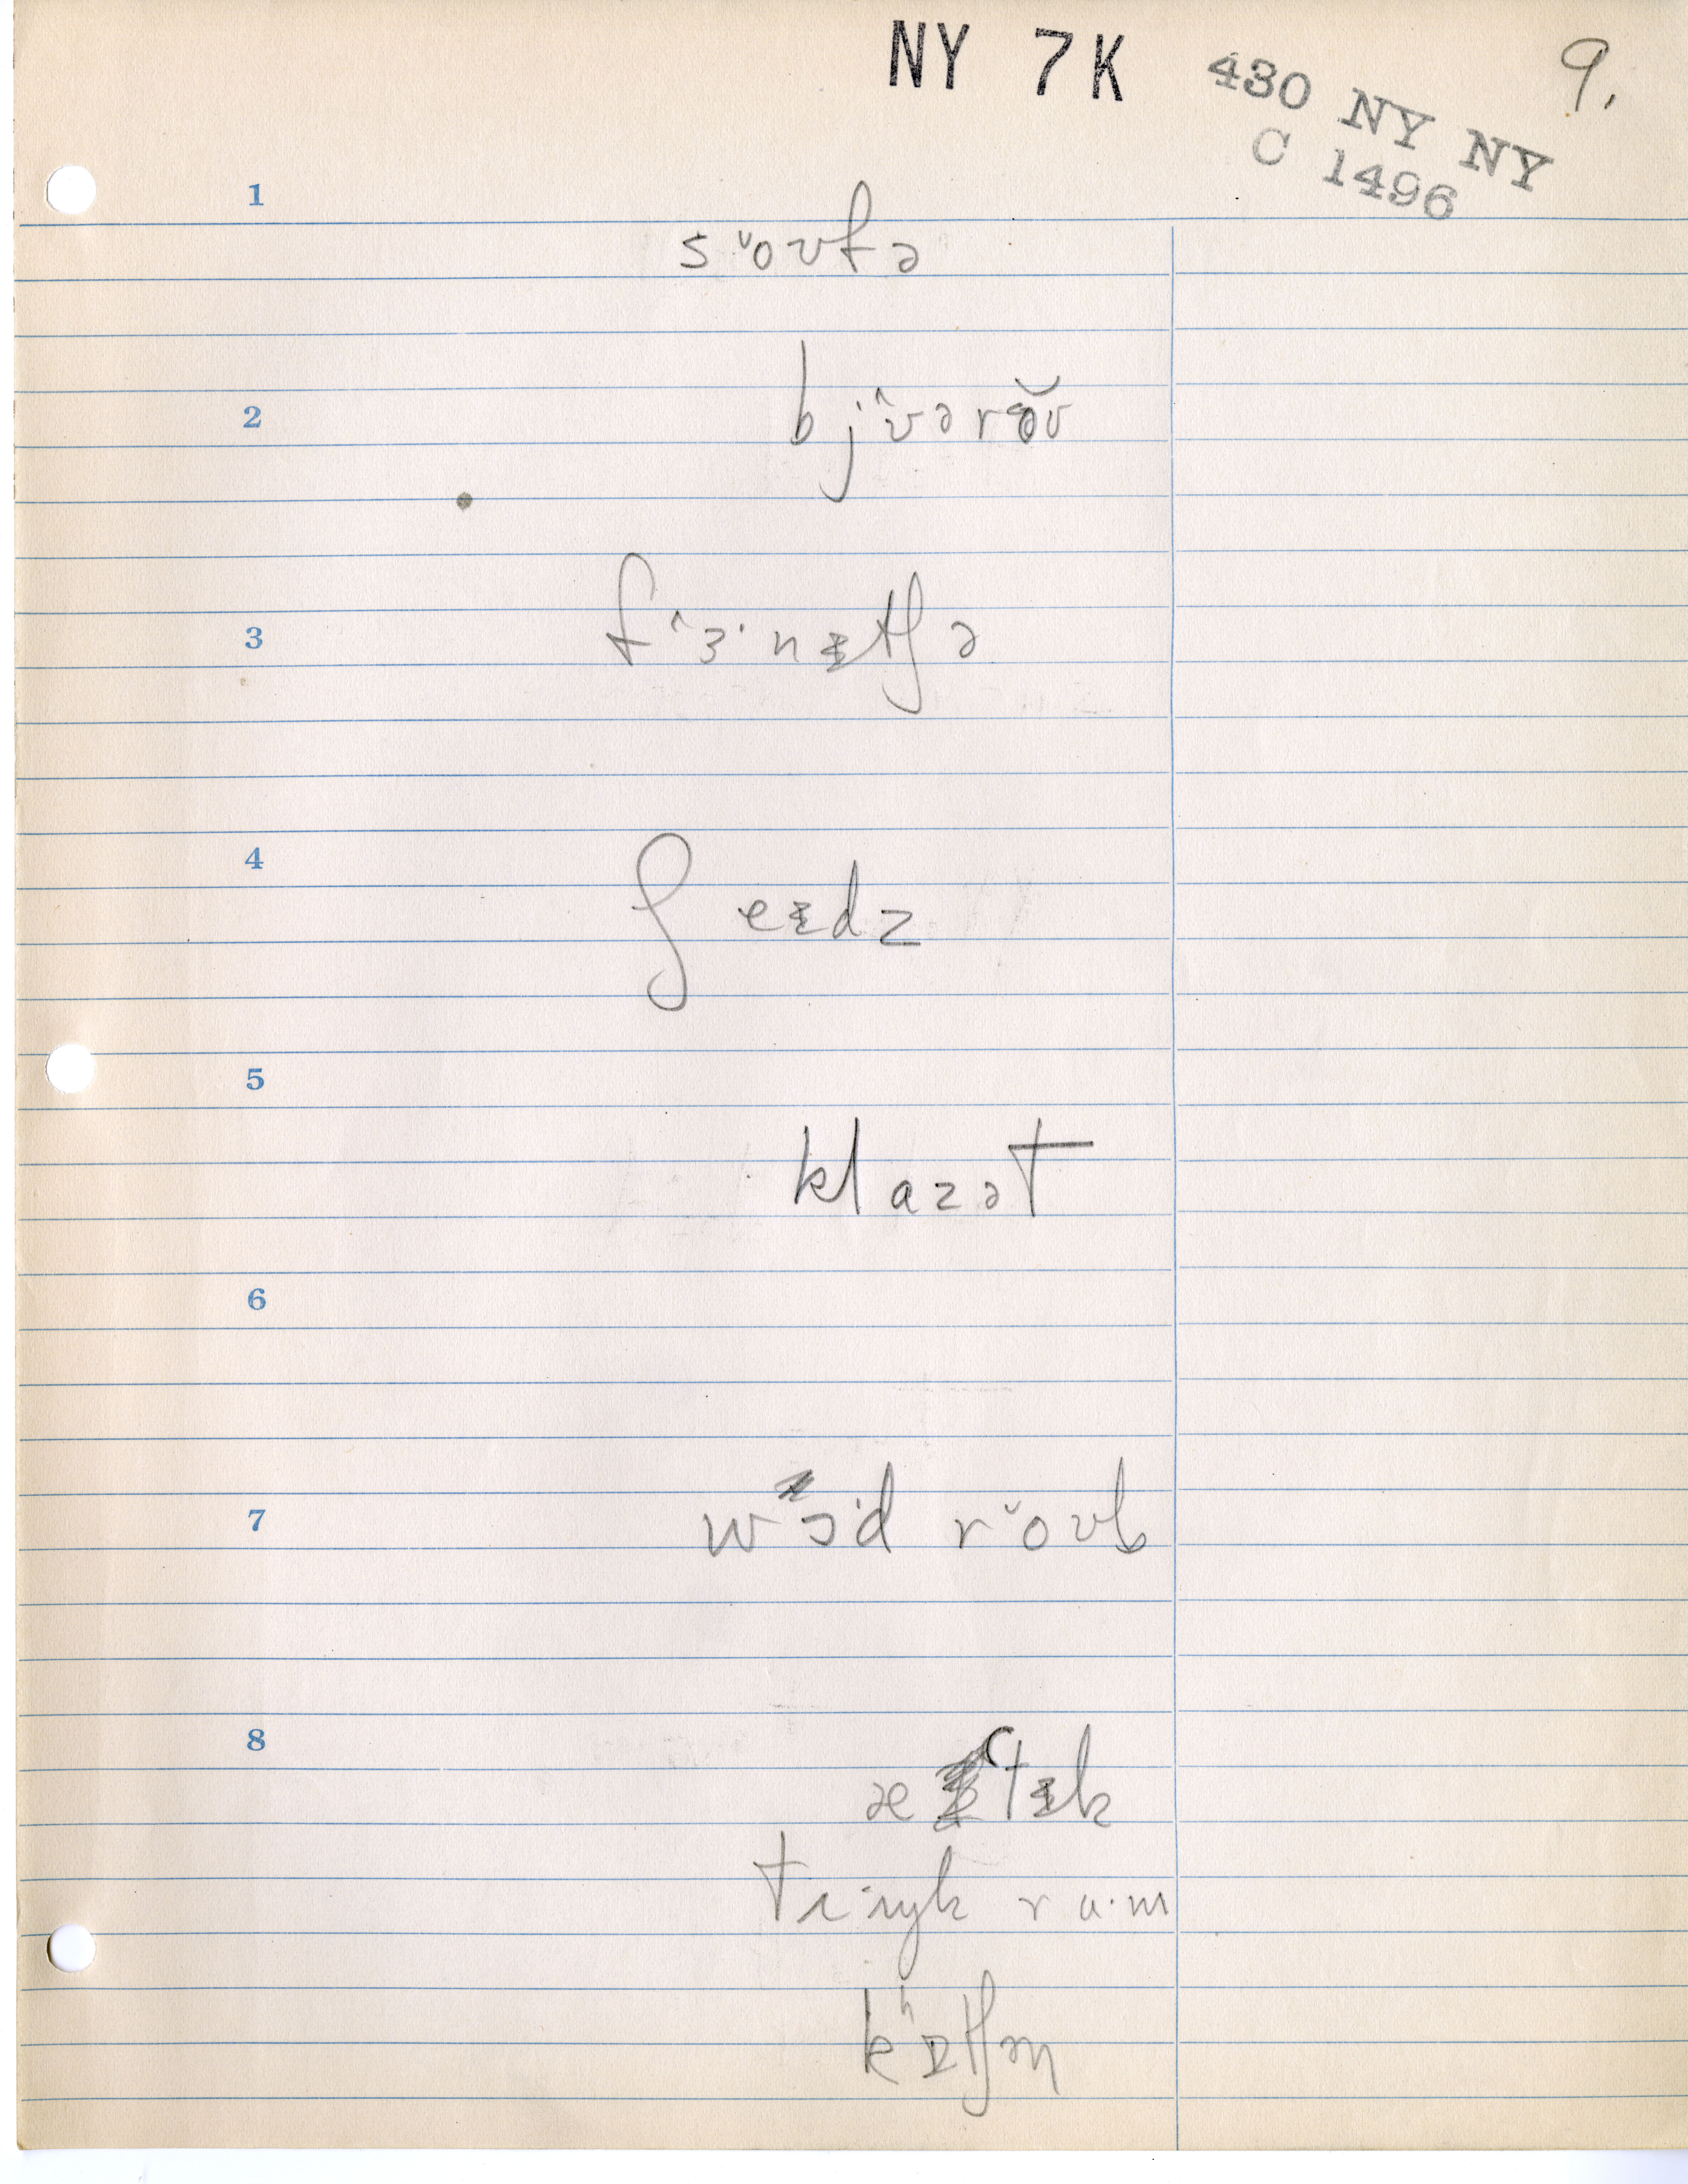 NY 7K 430 NY NY 9.
C 1496
1
s ˇoʊfə
2
bj ˆʊərə̆ʊ
3
f ˆɜ· nɪtʃə
4
ʃ eɪdz
5
klazət
6
7
wɔ·d r ˇoʊb
8
ætɪk
trʌŋk ru·m
kʰɪtʃən